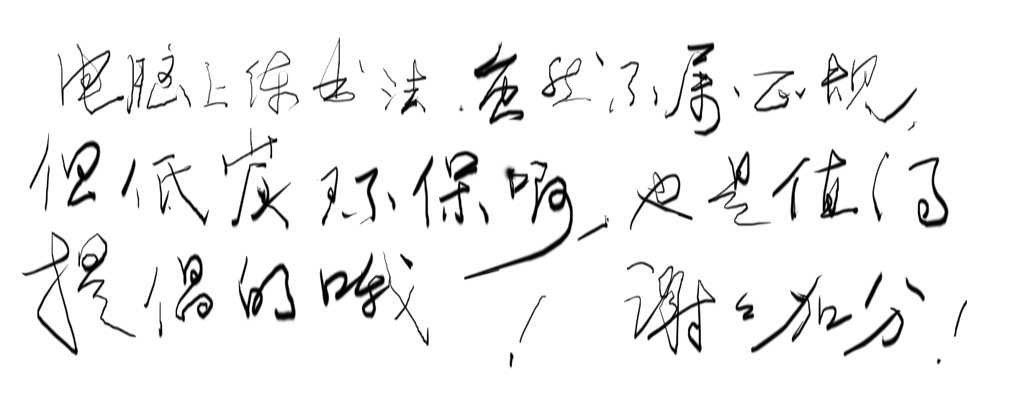 电脑上练书法，虽然不属正规，
但低炭环保啊，也是值得
提倡的哦！谢谢加分！